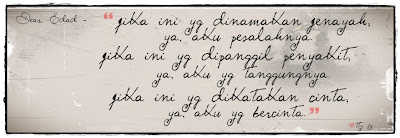 Dear Edad -
“ jika ini yg dinamakan jenayah,
ya, aku pesalahnya.
jika ini yg dipanggil penyakit,
ya, aku yg tanggungnya.
jika ini yg dikatakan cinta,
ya, aku yg bercinta. ”